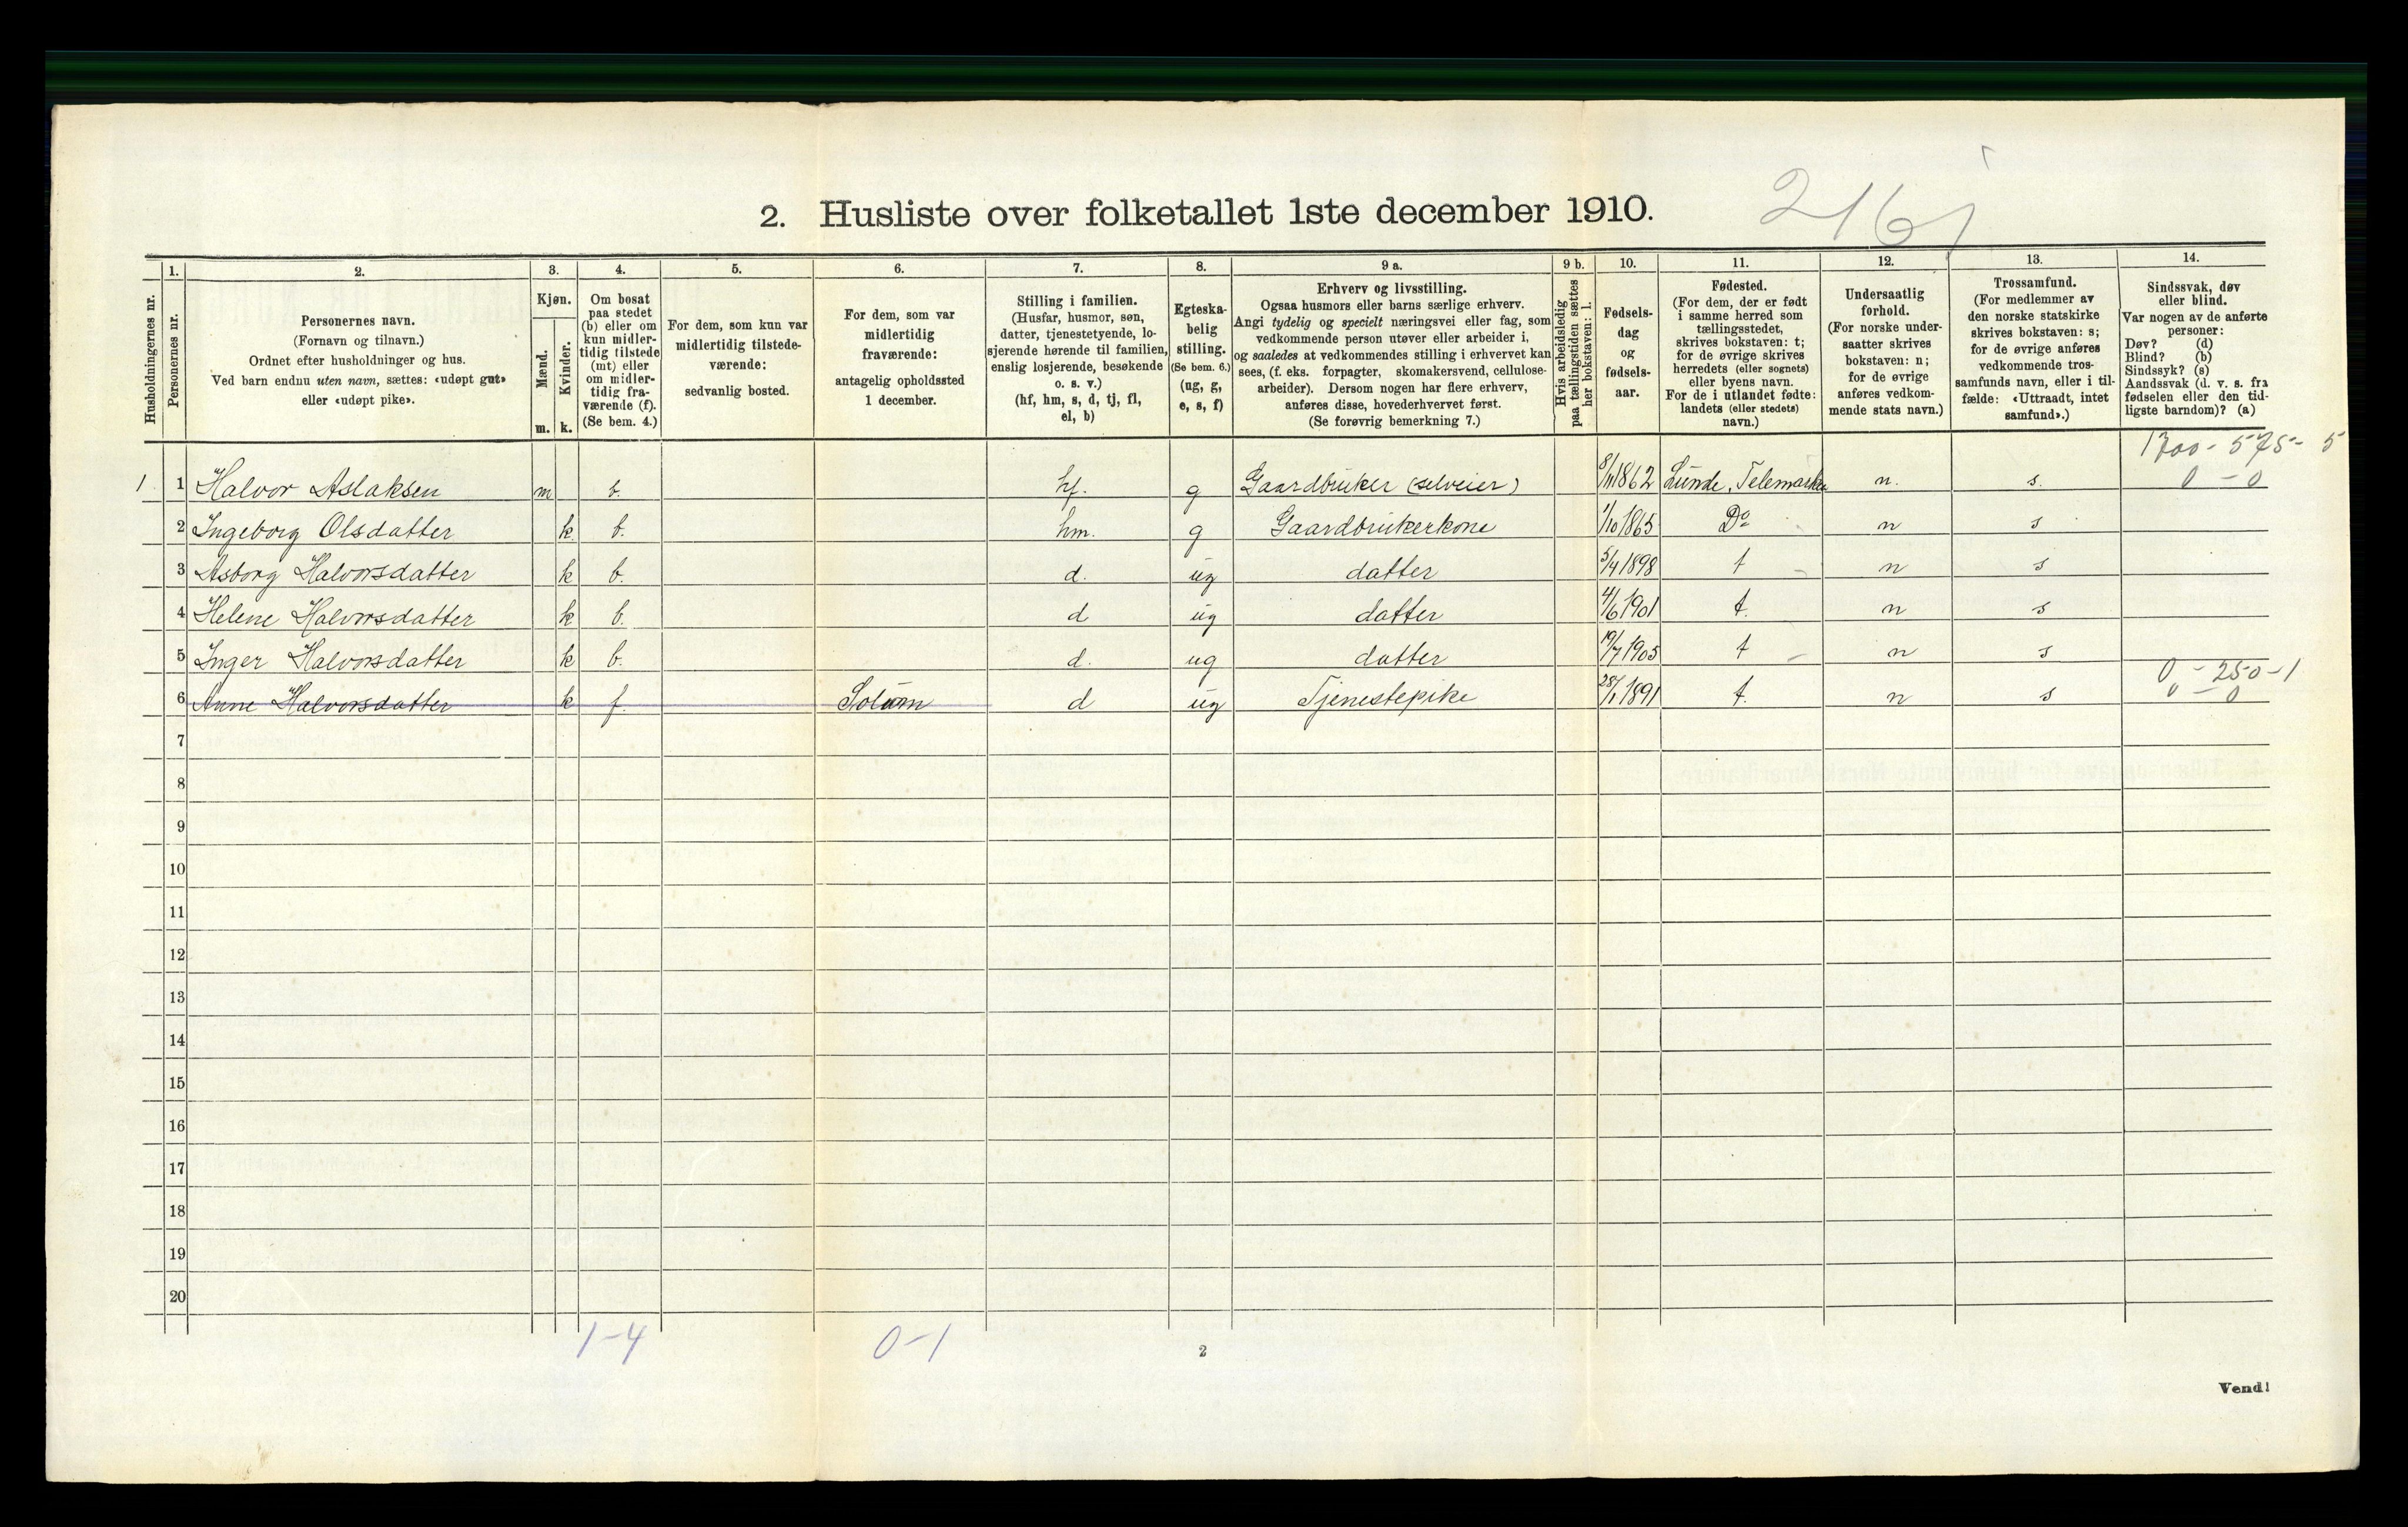 2. Husliste over folketallet 1ste december 1910.
216j
Husholdningernes nr.
1.
Personernes nr.
2.
Personernes navn.
(Fornavn og tilnavn.)
Ordnet efter husholdninger og hus.
Ved barn endnu uten navn, sættes: «udøpt gut»
eller «udøpt pike».
3.
Kjøn.
Mænd.
Kvinder.
m. k.
4.
Om bosat
paa stedet
(b) eller om
kun midler-
tidig tilstede
(mt) eller
om midler-
tidig fra-
værende (f).
(Se bem. 4.)
5.
For dem, som kun var
midlertidig tilstede-
værende:
sedvanlig bosted.
6.
For dem, som var
midlertidig
fraværende:
antagelig opholdssted
1 december.
7.
Stilling i familien.
(Husfar, husmor, søn,
datter, tjenestetyende, lo-
sjerende hørende til familien,
enslig losjerende, besøkende
o. s. v.)
(hf, hm, s, d, tj, fl,
el, b)
8.
Egteska-
belig
stilling.
(Se bem. 6.)
(ug, g,
e, s, f)
9 a.
Erhverv og livsstilling.
Ogsaa husmors eller barns særlige erhverv.
Angi tydelig og specielt næringsvei eller fag, som
vedkommende person utøver eller arbeider i,
og saaledes at vedkommendes stilling i erhvervet kan
sees, (f. eks. forpagter, skomakersvend, cellulose-
arbeider). Dersom nogen har flere erhverv,
anføres disse, hovederhvervet først.
(Se forøvrig bemerkning 7.)
9 b.
Hvis arbeidsledig
paa tællingstiden sættes
her bokstaven: l.
10.
Fødsels-
dag
og
fødsels-
aar.
11.
Fødested.
(For dem, der er født
i samme herred som
tællingsstedet,
skrives bokstaven: t;
for de øvrige skrives
herredets (eller sognets)
eller byens navn.
For de i utlandet fødte:
landets (eller stedets)
navn.)
12.
Undersaatlig
forhold.
(For norske under-
saatter skrives
bokstaven: n;
for de øvrige
anføres vedkom-
mende stats navn.)
13.
Trossamfund.
(For medlemmer av
den norske statskirke
skrives bokstaven: s;
for de øvrige anføres
vedkommende tros-
samfunds navn, eller i til-
fælde: «Uttraadt, intet
samfund».)
14.
Sindssvak, døv
eller blind.
Var nogen av de anførte
personer:
Døv? (d)
Blind? (b)
Sindssyk? (s)
Aandssvak (d. v. s. fra
fødselen eller den tid-
ligste barndom)? (a)
1700 - 575 - 5
1 1 Halvor Aslaksen m b. hf. g Gaardbruker (selveier) 8/11 1862 Lunde, Telemarken n. s. 0 - 0
2 Ingeborg Olsdatter k b. hm. g Gaardbrukerkone 1/10 1865 Do n s
3 Asborg Halvorsdatter k b. d. ug datter 5/4 1898 t n s
4 Helene Halvorsdatter k b. d ug datter 4/6 1901 t. n s
5 Inger Halvorsdatter k b. d. ug datter 19/7 1905 t n s
0 - 250 - 1
6 Anne Halvorsdatter k f. Solum d ug Tjenestepike 28/1 1891 t. n s 0 - 0
7
8
9
10
11
12
13
14
15
16
17
18
19
20
1-4 0-1
2
Vend!